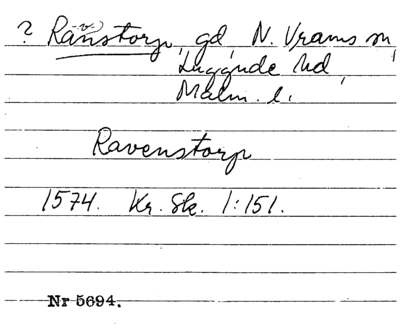 ? Ranstorp, gd, N. Vrams sn,
(-v-)
Luggude hd,
Malm. l.
Ravenstorp
1574. Kr. Sk. 1:151.
Nr 5694.